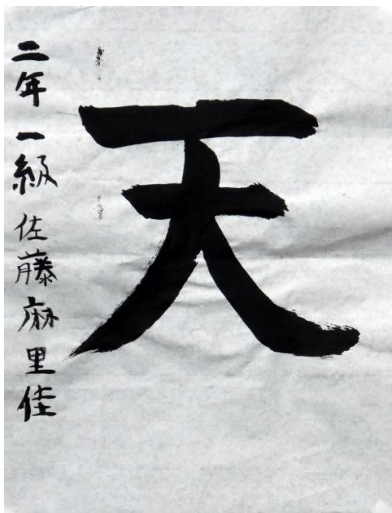 天
二年一級佐藤麻里佳